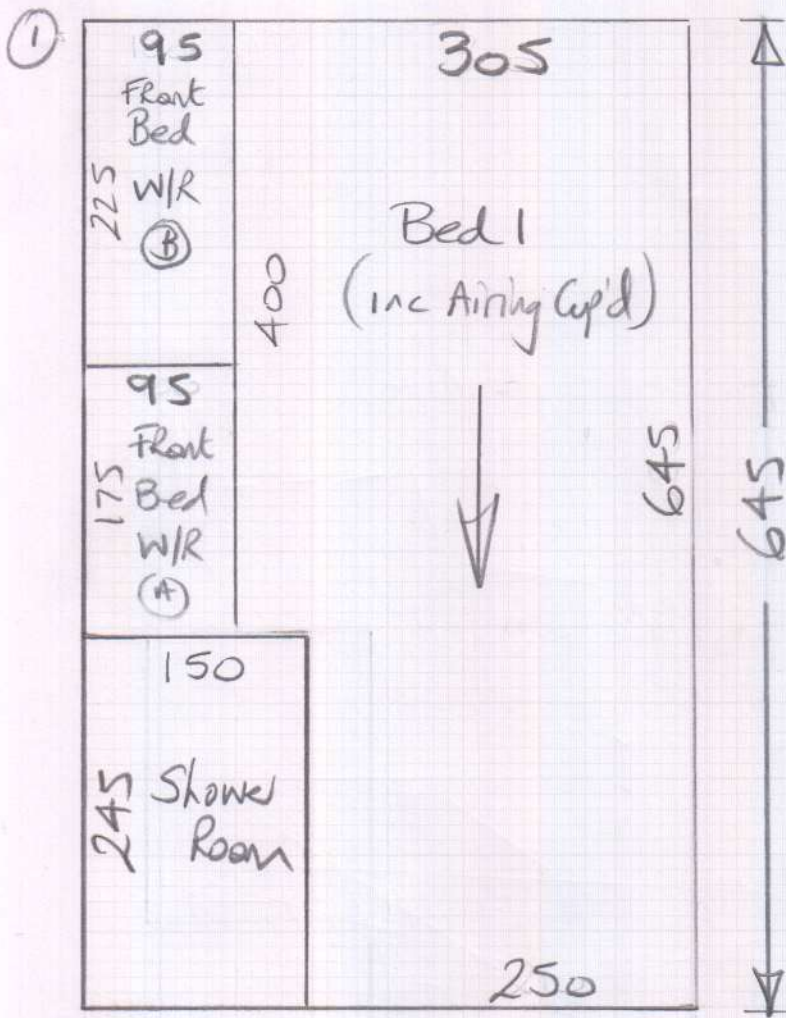 1
95
Front
Bed
W/R
B
225
305
Bed 1
(inc Airing Cup'd)
400
95
Front
Bed
W/R
A
175
645
645
150
Shower
Room
245
250